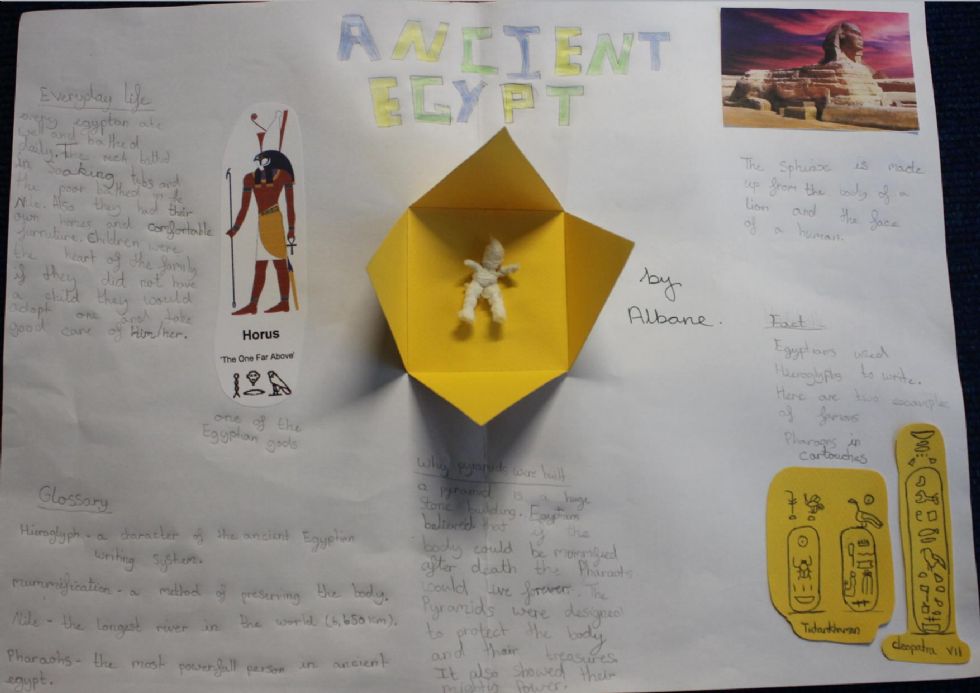 ANCIENT
EGYPT
Everyday life
every egyptan ate
well and bathed
daily. The rich bathed
in soaking tubs and
the poor bathed in the
Nile. Also they had their
own horses and comfortable
furniture. Children were
the heart of the family
if they did not have
a child they would
adopt one and take
good care of him/her.
Horus
'The One Far Above'
one of the
Egyptian gods
by
Albane.
The Sphinx is made
up from the body of a
lion and the face
of a human.
Fact
Egyptians used
Hieroglyphs to write.
Here are two examples
of famous
Pharaohs in
cartouches
Tutankhamun
cleopatra VII
Glossary
Hieroglyph - a character of the ancient Egyptian
writing system.
mummification - a method of preserving the body.
Nile - the longest river in the world (6,650 km).
Pharaohs - the most powerfull person in ancient
egypt.
Why pyramids were built
a pyramid is a huge
stone building. Egyptians
believed that if the
body could be mummified
after death the Pharaohs
would live forever. The
Pyramids were designed
to protect the body
and their treasures.
It also showed their
mighty power.